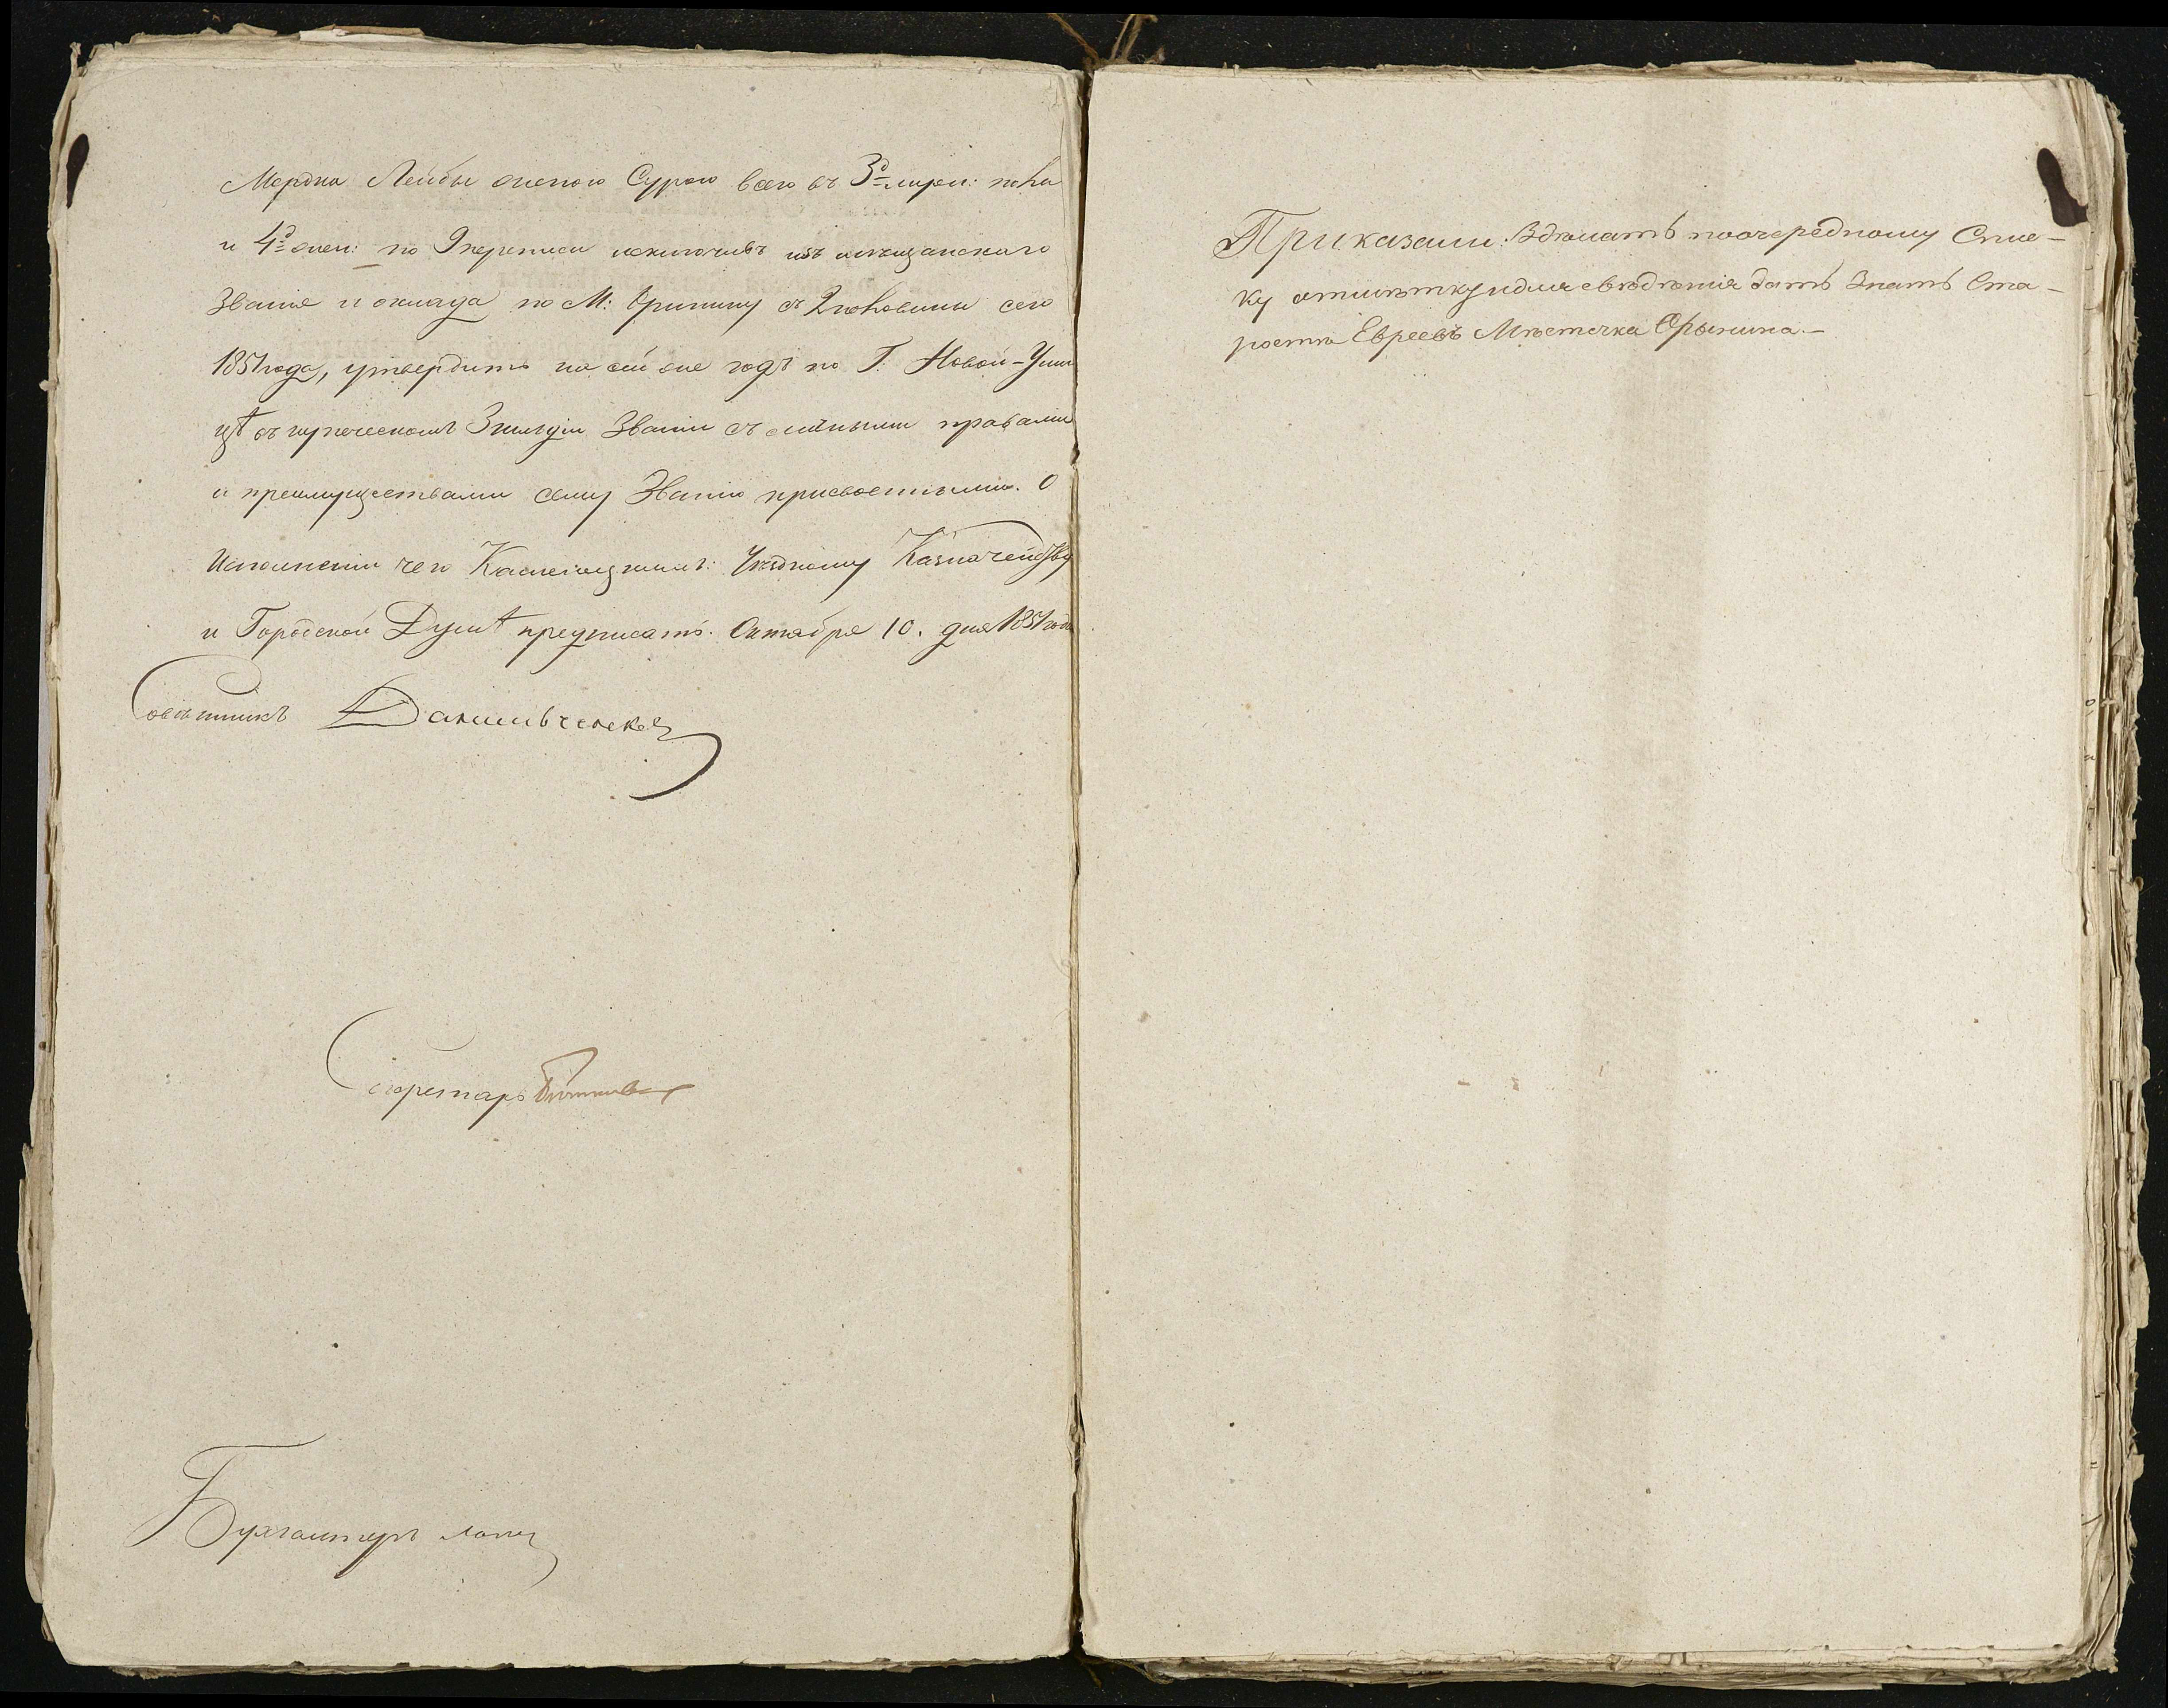 Мердка Лейбы женою Сурою всего въ 3-д мужеи: пола
и 4-д жен: по 9 переписи исключивъ изъ мѣщанскаго
званія и оклада по М: Орынину съ 2 половины сего
1851 года, утвердить на сей же годъ по Г. Новой-Уши
цѣ въ купеческомъ 3 гильдіи званіи съ личными правами
и преимуществами сему званію присвоенными. О
исполненіи чего Каменецкимъ: Уѣздному Казначейству
и Городской Думѣ предписать. Октября 10. дня 1851 года
Совѣтникъ Данильченко
Секретарь
Бухгалтеръ
Приказали: Здѣлать поочередному Спис-
ку отмѣтку и для свѣдѣнія дать знать Ста-
роста Евреевъ Мѣстечка Орынина.—